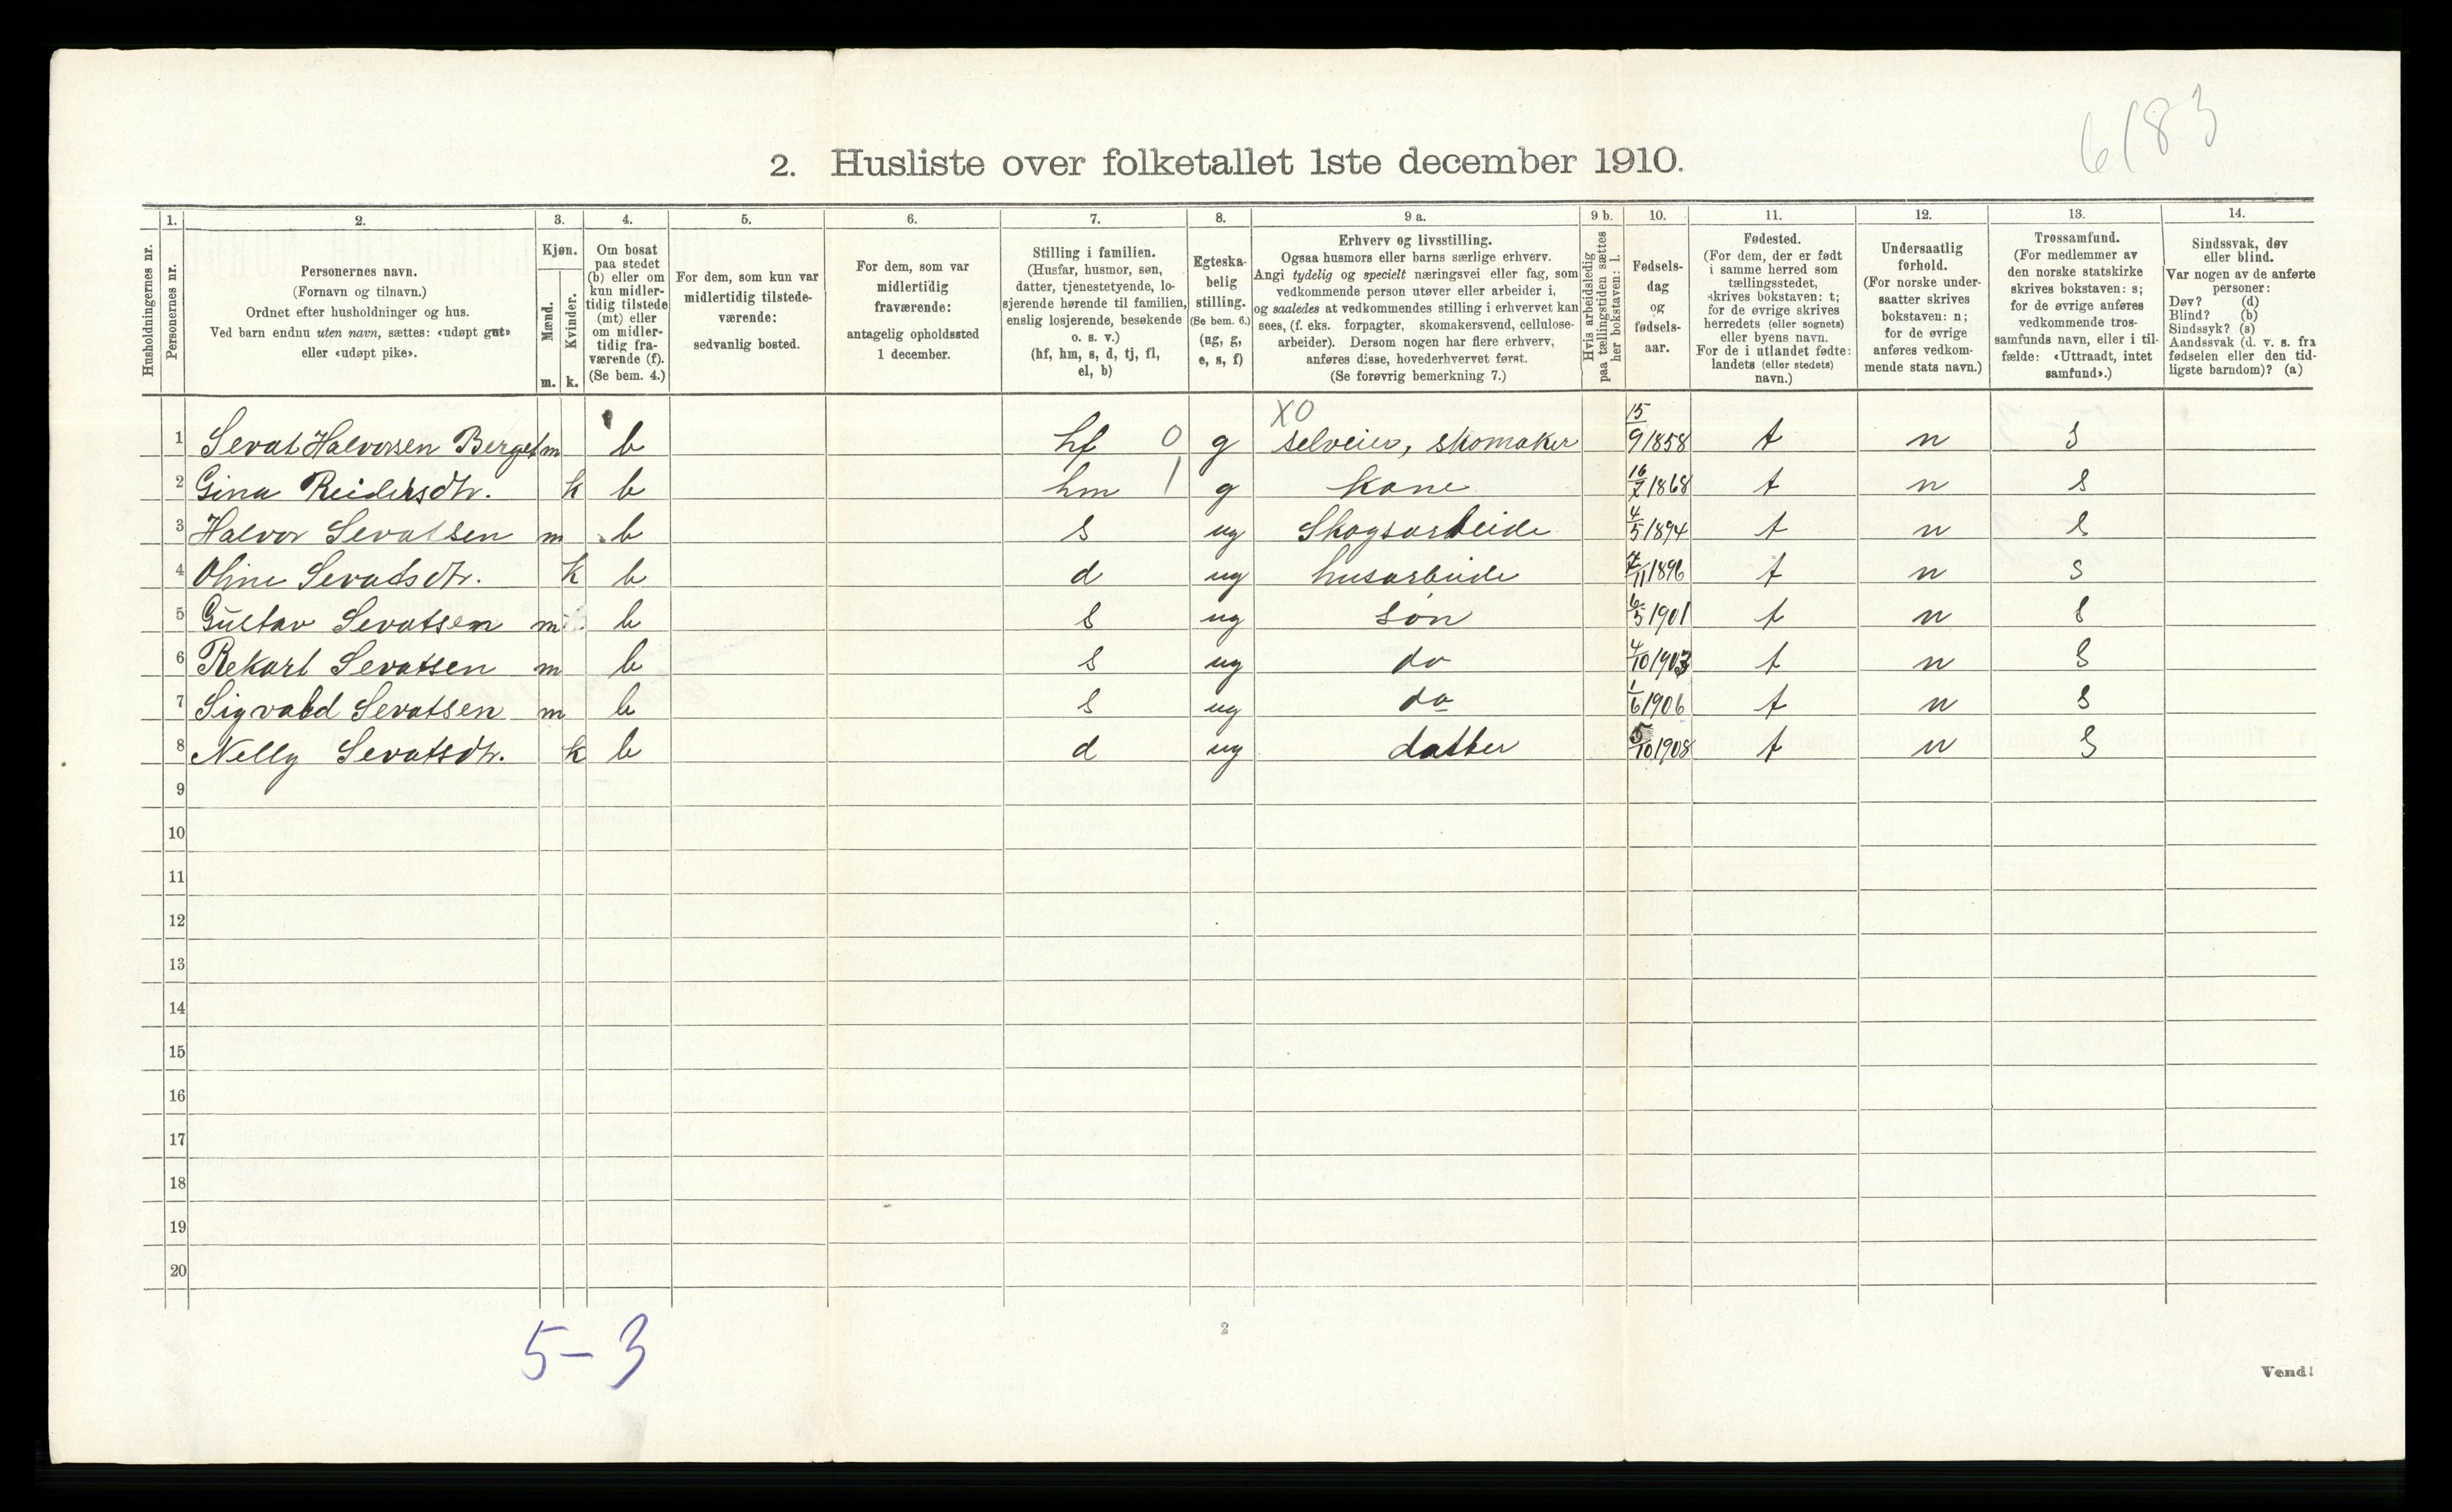 6183
2. Husliste over folketallet 1ste december 1910.
Husholdningernes nr.
1.
Personernes nr.
2.
Personernes navn.
(Fornavn og tilnavn.)
Ordnet efter husholdninger og hus.
Ved barn endnu uten navn, sættes: «udøpt gut»
eller «udøpt pike».
3.
Kjøn.
Mænd.
Kvinder.
m. k.
4.
Om bosat
paa stedet
(b) eller om
kun midler-
tidig tilstede
(mt) eller
om midler-
tidig fra-
værende (f).
(Se bem. 4.)
5.
For dem, som kun var
midlertidig tilstede-
værende:
sedvanlig bosted.
6.
For dem, som var
midlertidig
fraværende:
antagelig opholdssted
1 december.
7.
Stilling i familien.
(Husfar, husmor, søn,
datter, tjenestetyende, lo-
sjerende hørende til familien,
enslig losjerende, besøkende
o. s. v.)
(hf, hm, s, d, tj, fl,
el, b)
8.
Egteska-
belig
stilling.
(Se bem. 6.)
(ug, g,
e, s, f)
9 a.
Erhverv og livsstilling.
Ogsaa husmors eller barns særlige erhverv.
Angi tydelig og specielt næringsvei eller fag, som
vedkommende person utøver eller arbeider i,
og saaledes at vedkommendes stilling i erhvervet kan
sees, (f. eks. forpagter, skomakersvend, cellulose-
arbeider). Dersom nogen har flere erhverv,
anføres disse, hovederhvervet først.
(Se forøvrig bemerkning 7.)
9 b.
Hvis arbeidsledig
paa tællingstiden sættes
her bokstaven: l.
10.
Fødsels-
dag
og
fødsels-
aar.
11.
Fødested.
(For dem, der er født
i samme herred som
tællingsstedet,
skrives bokstaven: t;
for de øvrige skrives
herredets (eller sognets)
eller byens navn.
For de i utlandet fødte:
landets (eller stedets)
navn.)
12.
Undersaatlig
forhold.
(For norske under-
saatter skrives
bokstaven: n;
for de øvrige
anføres vedkom-
mende stats navn.)
13.
Trossamfund.
(For medlemmer av
den norske statskirke
skrives bokstaven: s;
for de øvrige anføres
vedkommende tros-
samfunds navn, eller i til-
fælde: «Uttraadt, intet
samfund».)
14.
Sindssvak, døv
eller blind.
Var nogen av de anførte
personer:
Døv? (d)
Blind? (b)
Sindssyk? (s)
Aandssvak (d. v. s. fra
fødselen eller den tid-
ligste barndom)? (a)
XO
1 Sevat Halvorsen Berget m b hf 0 g selveier, skomaker 15/9 1858 t n s
2 Gina Reidersdtr. k b hm 1 g kone 16/7 1868 t n s
3 Halvor Sevatsen m b s ug Skogsarbeide 4/5 1894 t n s
4 Oline Sevatsdtr. k b d ug husarbeide 7/11 1896 t n s
5 Gustav Sevatsen m b s ug søn 6/5 1901 t n s
6 Rekart Sevatsen m b s ug do 4/10 1903 t n s
7 Sigvald Sevatsen m b s ug do 1/6 1906 t n s
8 Nelly Sevatsdtr. k b d ug datter 5/10 1908 t n s
9
10
11
12
13
14
15
16
17
18
19
20
5-3
2
Vend!